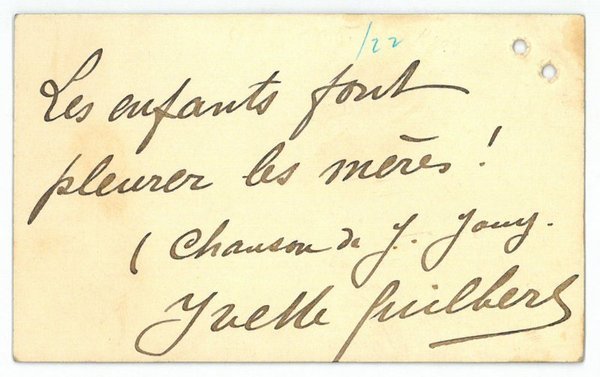 /22
Les enfants font
pleurer les mères!
(Chanson de J. Jouy.
Yvette Guilbert